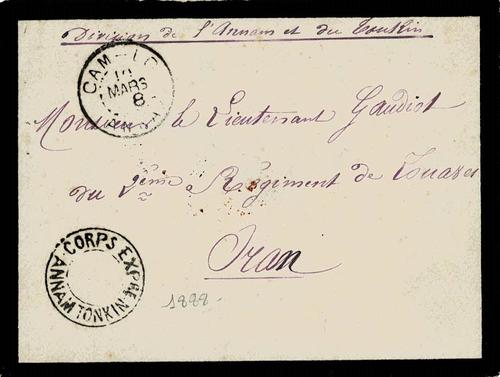 Division de l'Annam et du Tonkin
CAM-LO
10
MARS
8
ANNAM
Monsieur le Lieutenant Gaudiot
du 2ème Régiment de Zouaves
Oran
CORPS EXPRE
ANNAM TONKIN
1888